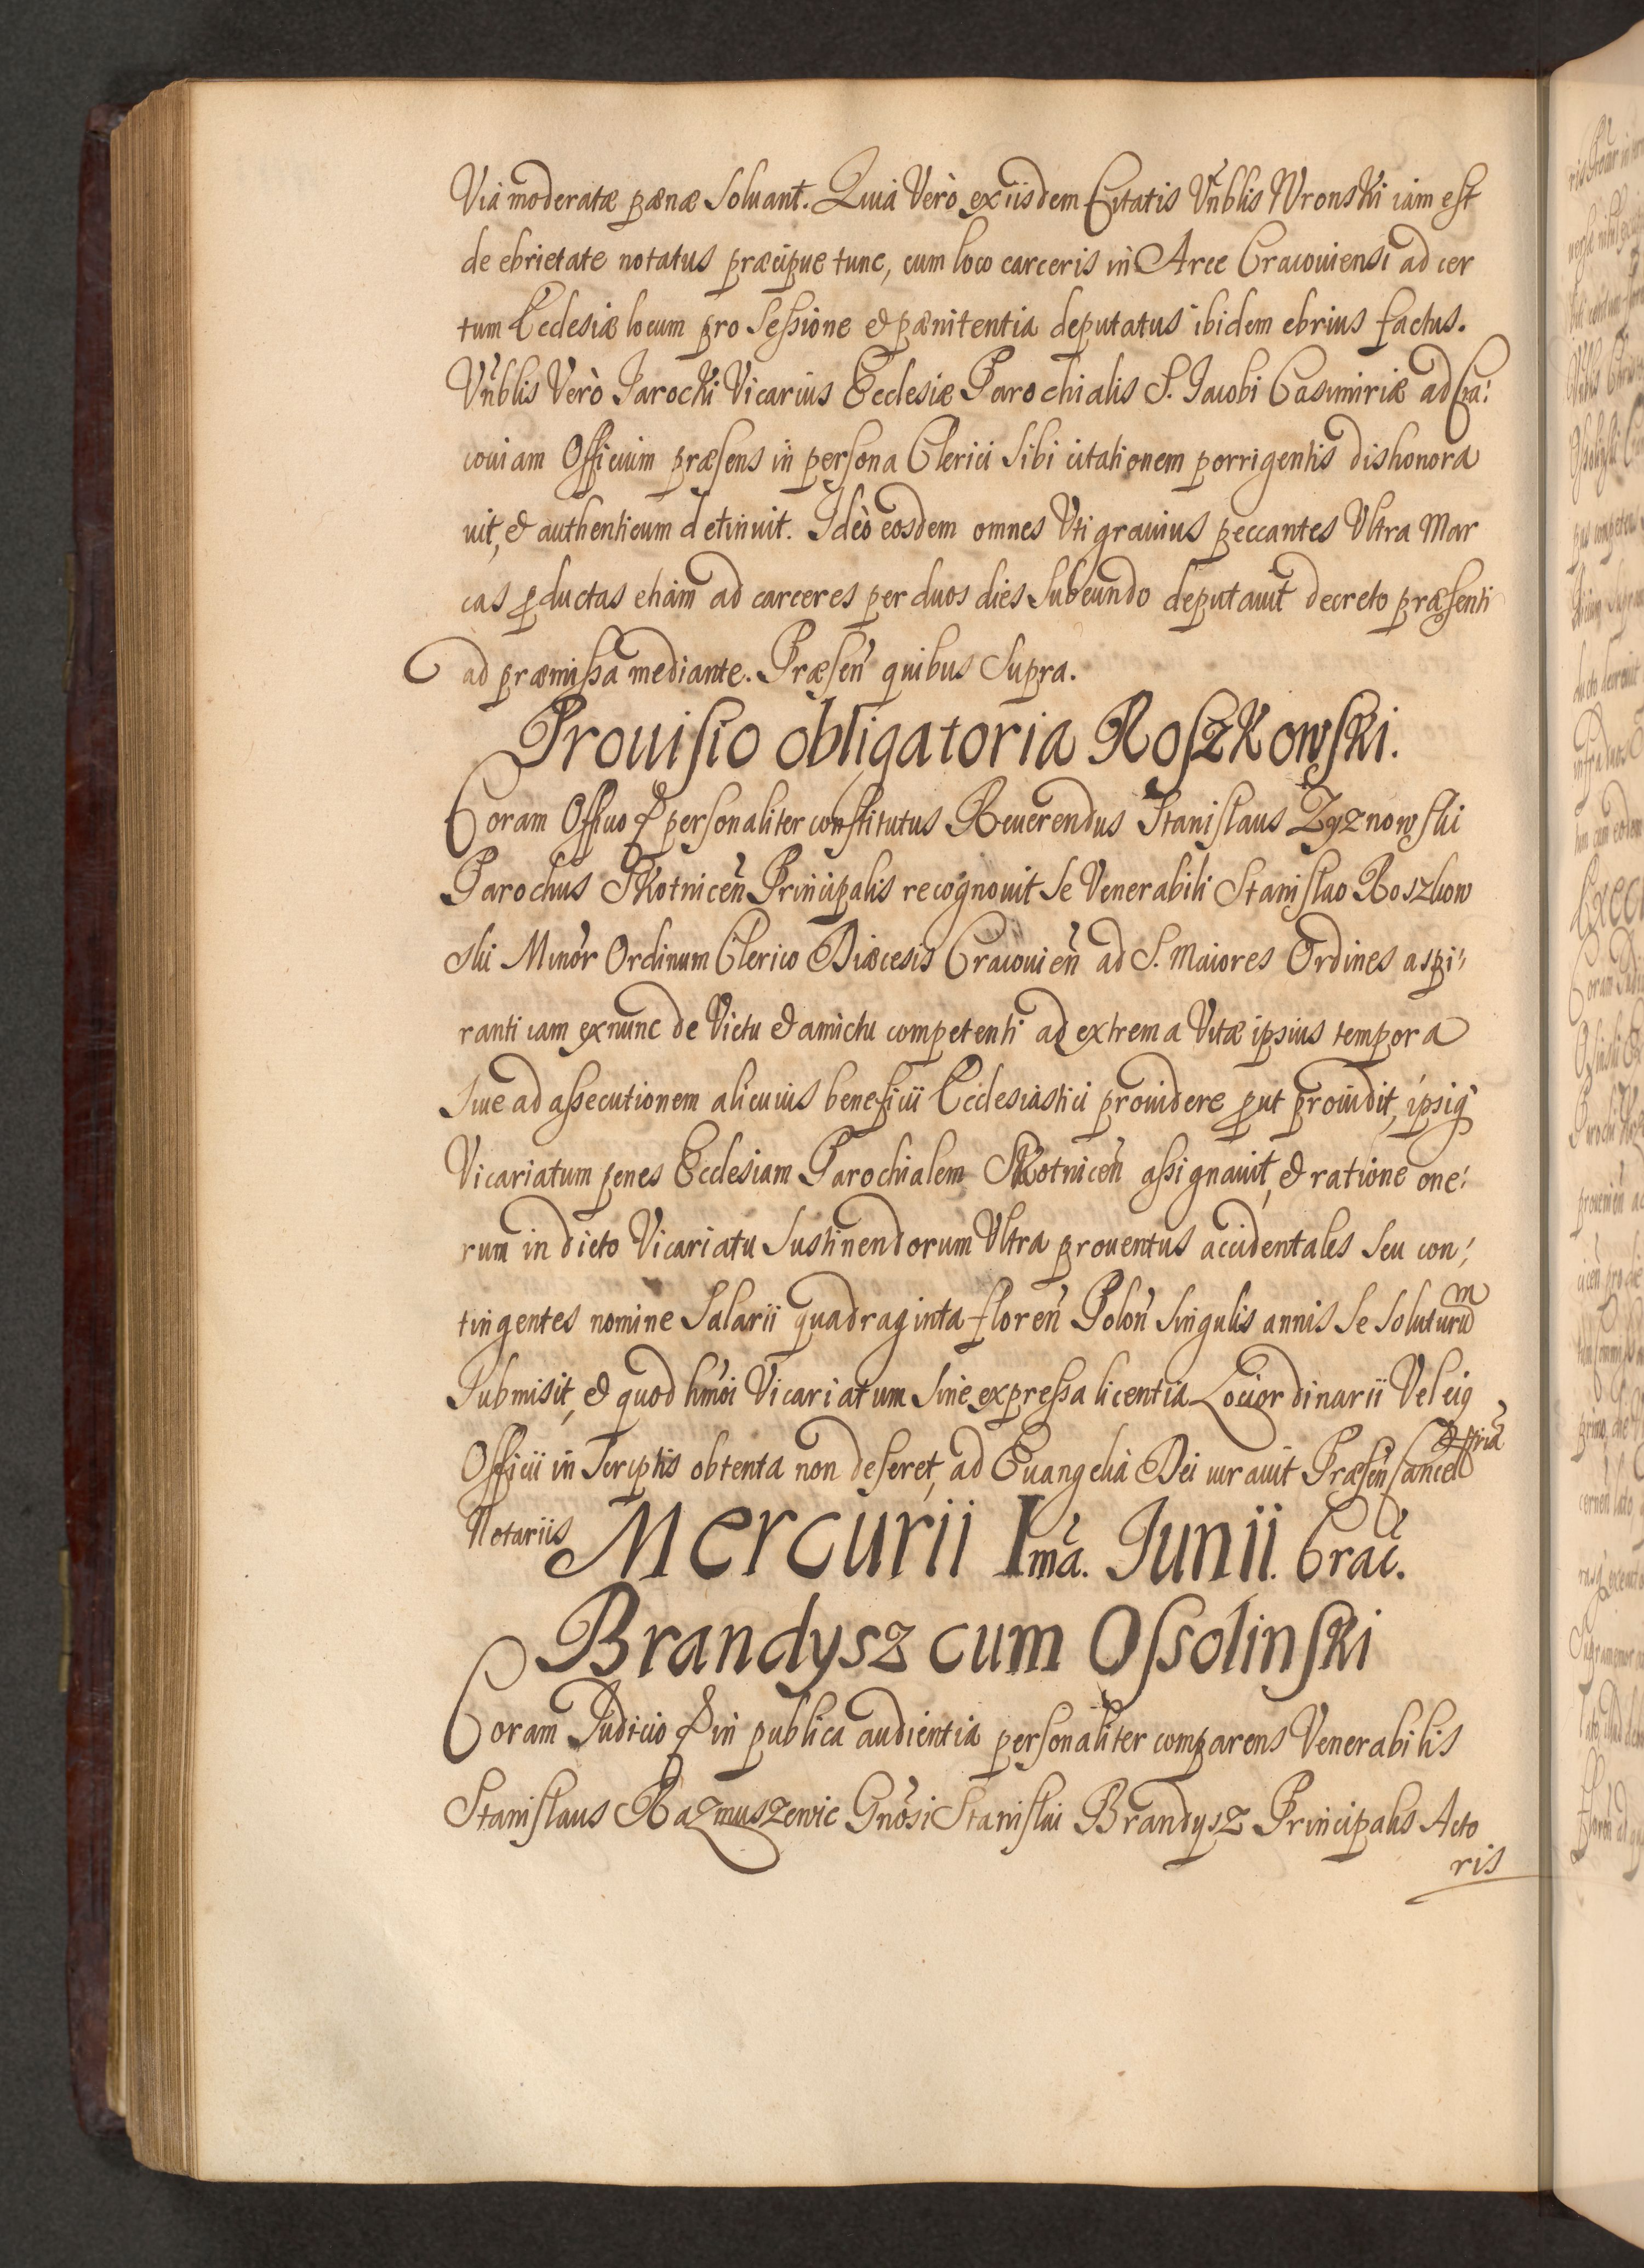 Via moderatæ pænæ soluant. Quia Verò exiisdem Citatis Vn̄blis Wronski iam est
de ebrietate notatus præcipue tunc, cum loco carceris in Arce Cracouiensi ad cer
tum Ecclesiæ locum pro Sessione & pænitentia deputatus ibidem ebrius factus.
Vn̄blis Verò Jarocki Vicarius Ecclesiæ Parochialis S. Jacobi Casimiriæ ad Cra:
couiam Officium præsens in persona Clerici sibi citationem porrigentis dishonora
uit, & authenticum detinuit. Ideò eosdem omnes Vti grauius peccantes Vltra Mar
cas ꝓductas etiam ad carceres per duos dies Subeundo deputauit decreto præsenti
ad præmissa mediante. Præsen̄ quibus Supra.
Prouisio obligatoria Roszkowski.
Coram Officio & personaliter constitutus Reuerendus Stanislaus Zyznowski
Parochus Skotnicen̄ Principalis recognouit se Venerabili Stanislao Roszkow
ski Minor̄ Ordinum Clerico Diæcesis Cracouien̄ ad S. Maiores Ordines aspi:
ranti iam exnunc de Victu & amictu competenti ad extrema Vitæ ipsius tempora
siue ad assecutionem alicuius beneficii Ecclesiastici prouidere ꝓut prouidit, ipsiq̃
Vicariatum penes Ecclesiam Parochialem Skotnicen̄ assignauit, & ratione one:
rum in dicto Vicariatu Sustinendorum Vltra prouentus accidentales seu con:
tingentes nomine Salarii quadraginta floren̄ Polon̄ singulis annis se soluturum
Submisit, & quod hm̄oi Vicariatum sine expressa licentia Loci ordinarii Vel eiꝰ
Officii in Scriptis obtenta non deseret, ad Euangelia Dei iurauit Præsen̄ Cancell
Notariis
Mercurii Imā. Junii. Crac̄.
Brandysz cum Ossolinski
Coram Judicio & in publica audientia personaliter comparens Venerabilis
Stanislaus Razmuszewic Gnōsi Stanislai Brandysz Principalis Acto
ris